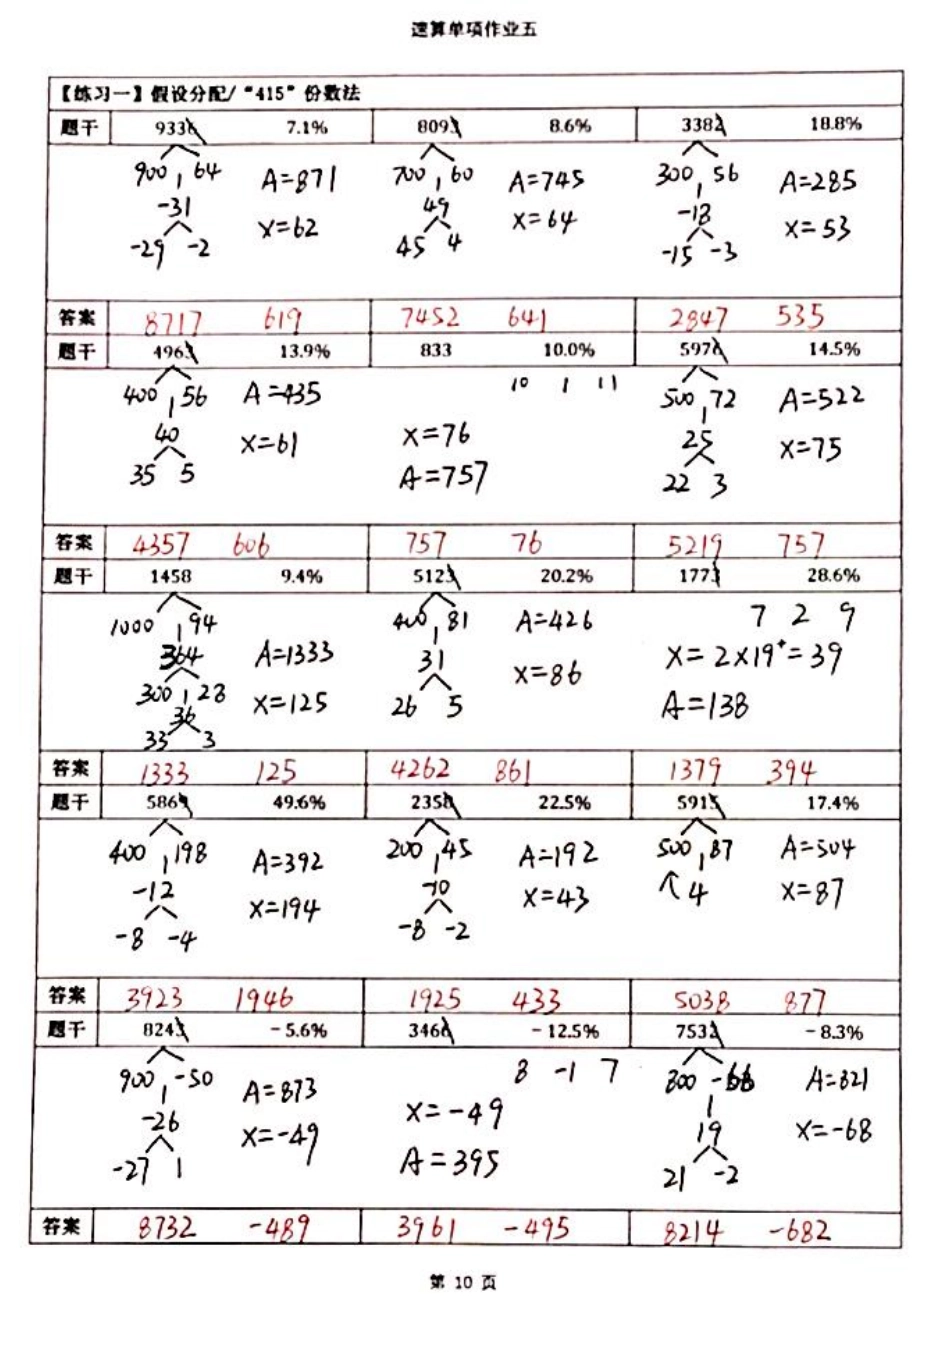 速算单项作业五
【练习一】假设分配/“415”份数法
题干 9336 7.1% 8093 8.6% 3382 18.8%
900 64 A=871 700 60 A=745 300 56 A=285
-31 X=62 49 X=64 -18 X=53
-29 -2 45 4 -15 -3
答案 8717 619 7452 641 2847 535
题干 4963 13.9% 833 10.0% 5976 14.5%
400 56 A=435 10 1 11 500 72 A=522
40 X=61 X=76 25 X=75
35 5 A=757 22 3
答案 4357 606 757 76 5219 757
题干 1458 9.4% 5123 20.2% 1773 28.6%
1000 94 400 81 A=426 7 2 9
364 A=1333 31 X=86 X=2×19⁺=39
300 28 X=125 26 5 A=138
36
33 3
答案 1333 125 4262 861 1379 394
题干 5869 49.6% 2358 22.5% 5915 17.4%
400 198 A=392 200 45 A=192 500 87 A=504
-12 X=194 -10 X=43 ↑4 X=87
-8 -4 -8 -2
答案 3923 1946 1925 433 5038 877
题干 8243 -5.6% 3466 -12.5% 7532 -8.3%
900 -50 A=873 8 -1 7 800 A=821
-26 X=-49 X=-49 19 X=-68
-27 1 A=395 21 -2
答案 8732 -489 3961 -495 8214 -682
第 10 页